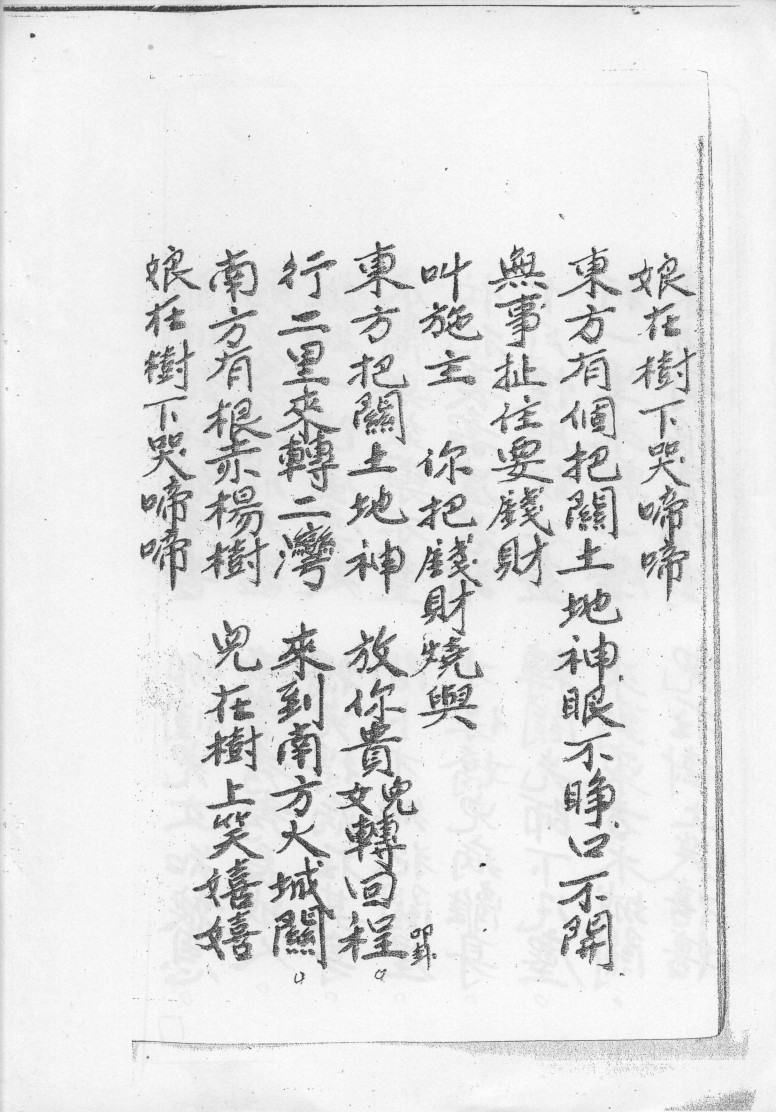 娘在樹下哭啼啼
東方有個把關土地神眼不睜口不開
無事扯住要錢財
叫施主 你把錢財燒與
東方把關土地神 放你貴兒女轉回程。
行二里來轉二灣 來到南方火城關。
南方有根赤楊樹 兒在樹上笑嬉嬉
娘在樹下哭啼啼